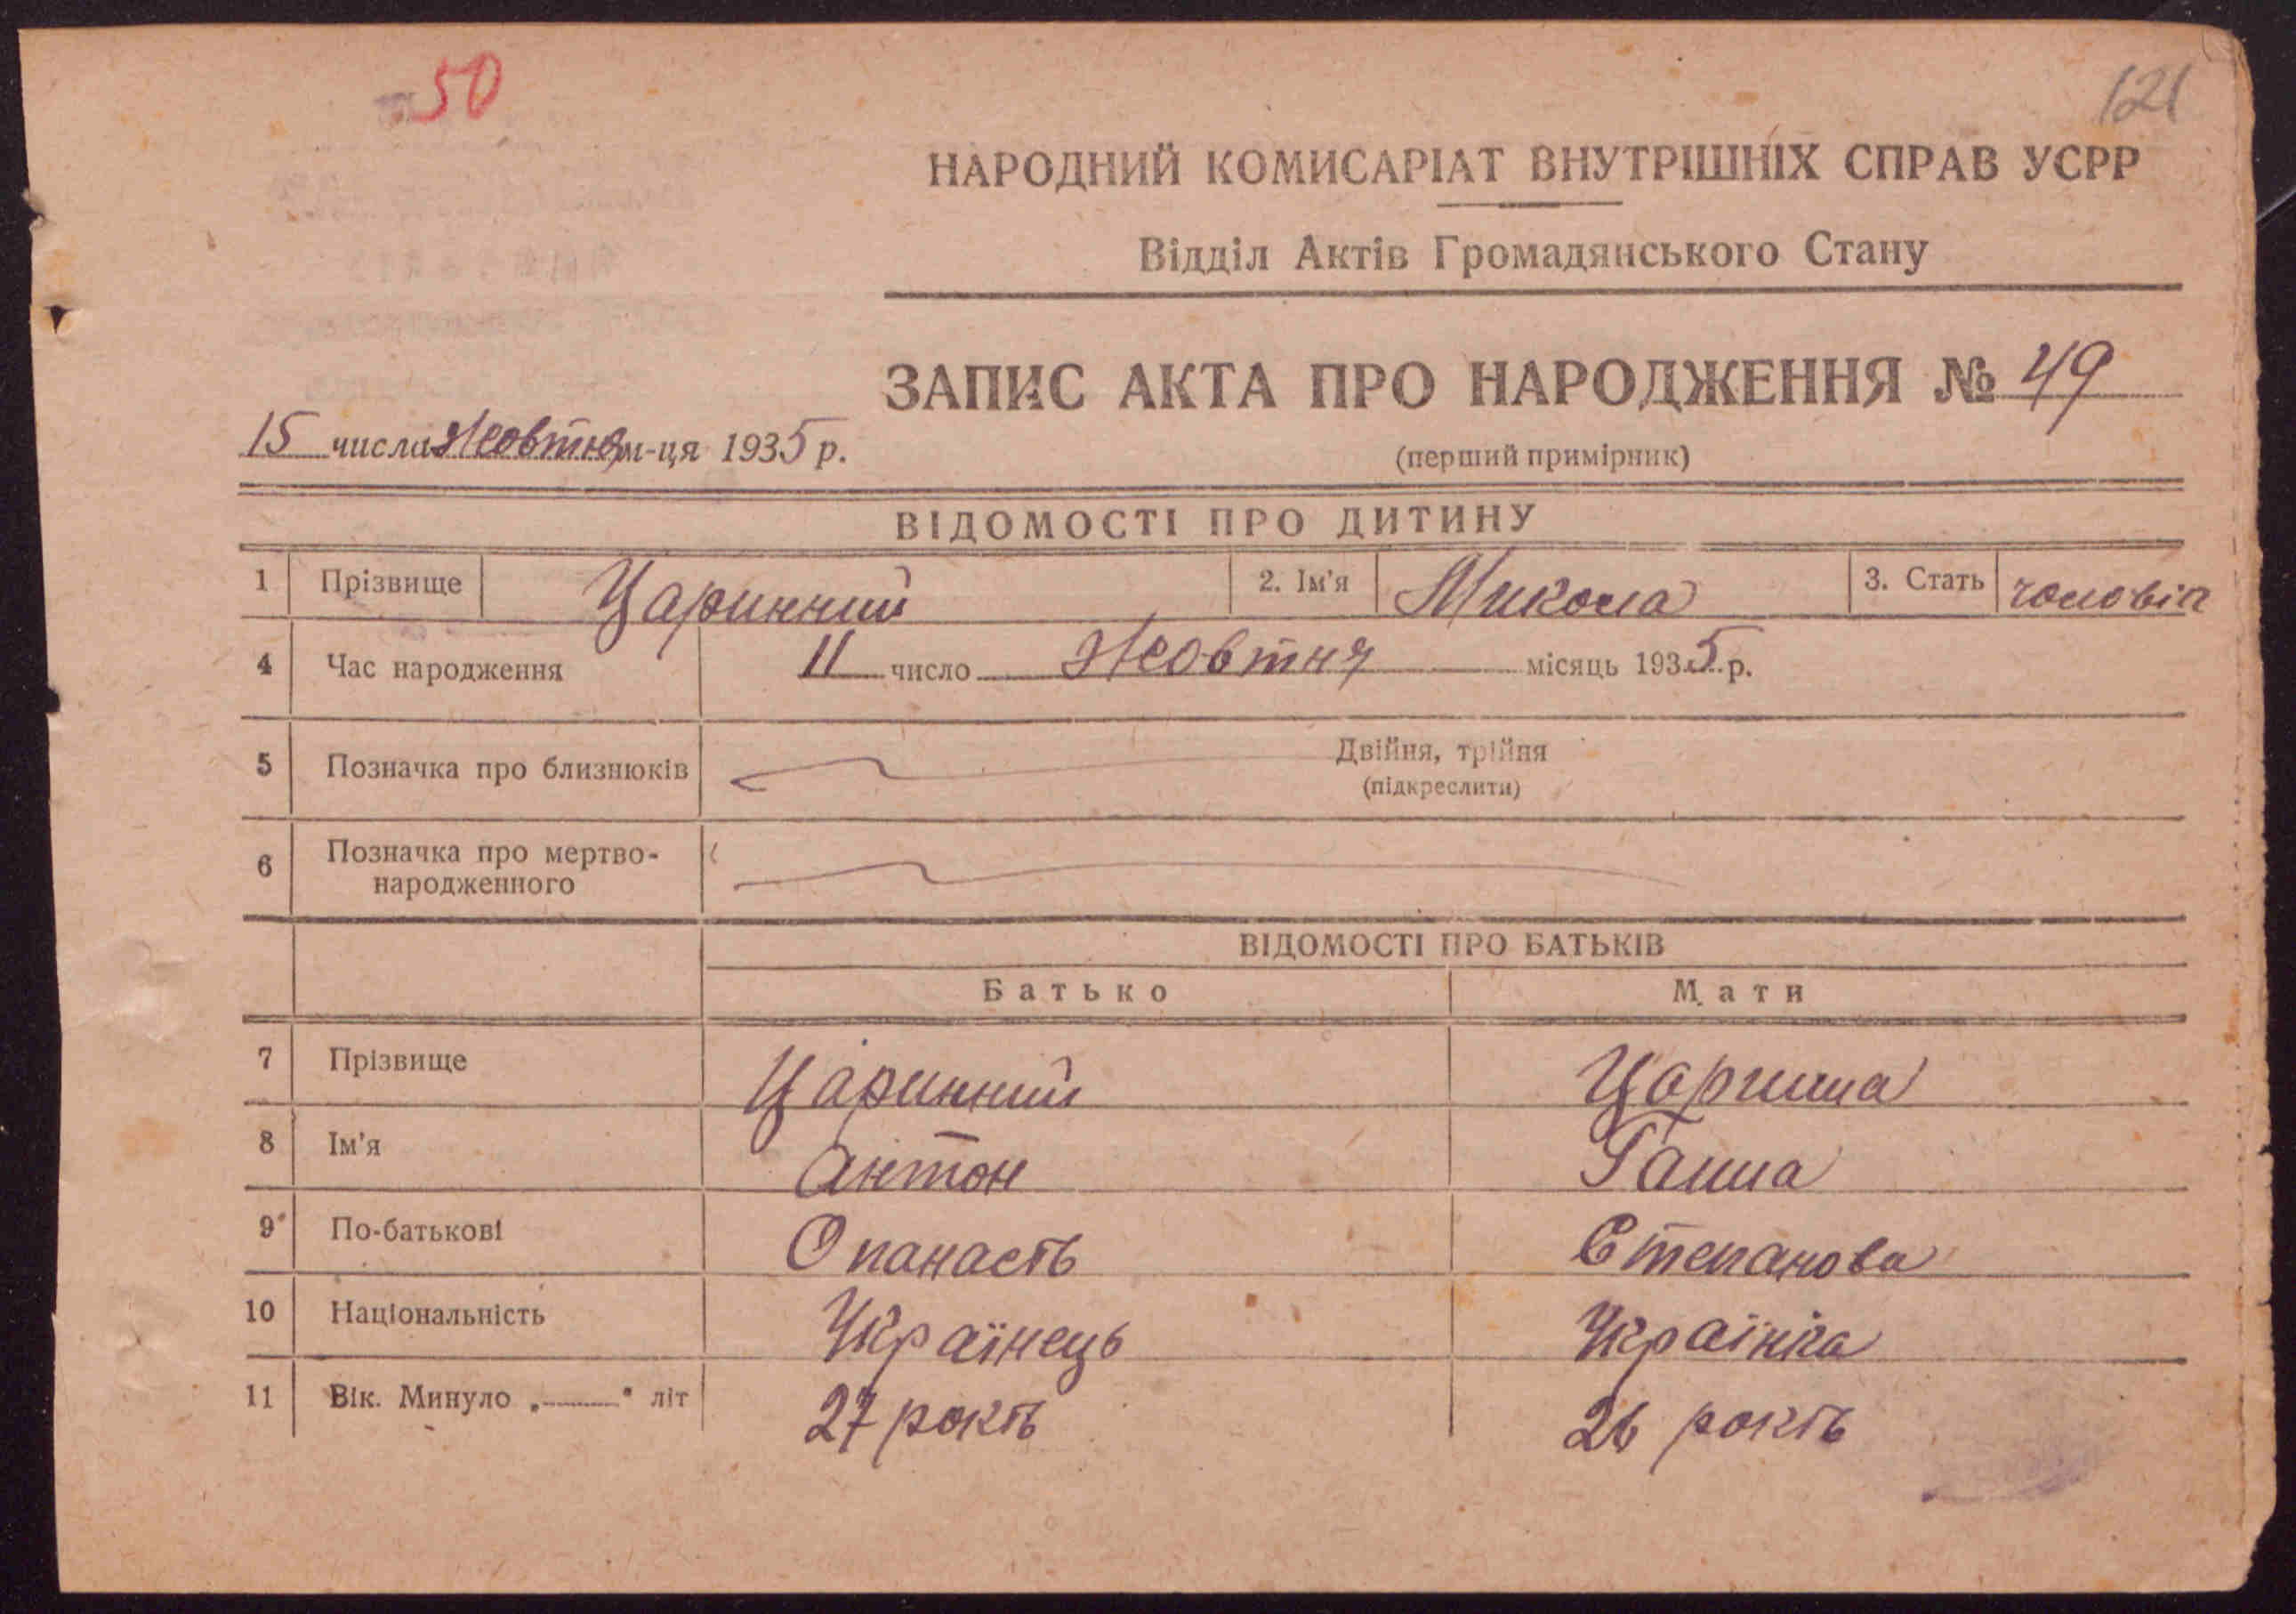 50
121
НАРОДНИЙ КОМИСАРІАТ ВНУТРІШНІХ СПРАВ УСРР
Відділ Актів Громадянського Стану
ЗАПИС АКТА ПРО НАРОДЖЕННЯ № 49
15 числа Жовтня м-ця 1935 р.
(перший примірник)
ВІДОМОСТІ ПРО ДИТИНУ
1 Прізвище Царинний 2. Ім'я Микола 3. Стать чоловіч
4 Час народження 11 число Жовтня місяць 1935 р.
5 Позначка про близнюків Двійня, трійня
(підкреслити)
6 Позначка про мертво-
народженного
ВІДОМОСТІ ПРО БАТЬКІВ
Батько Мати
7 Прізвище Царинний Царинна
8 Ім'я Антон Ганна
9 По-батькові Опанасів Степанова
10 Національність Українець Українка
11 Вік. Минуло „ " літ 27 років 26 років